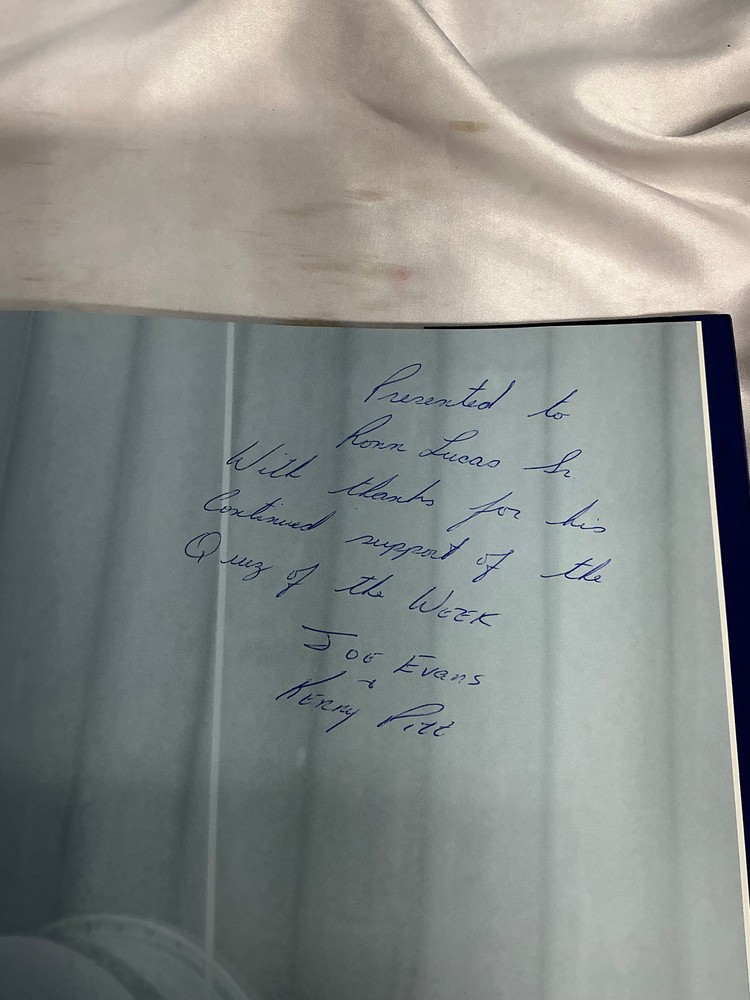 Presented to
Ronn Lucas Sr.
With thanks for his
Continued support of the
Quiz of the WEEK
JOE Evans
+
KERRY Pitt